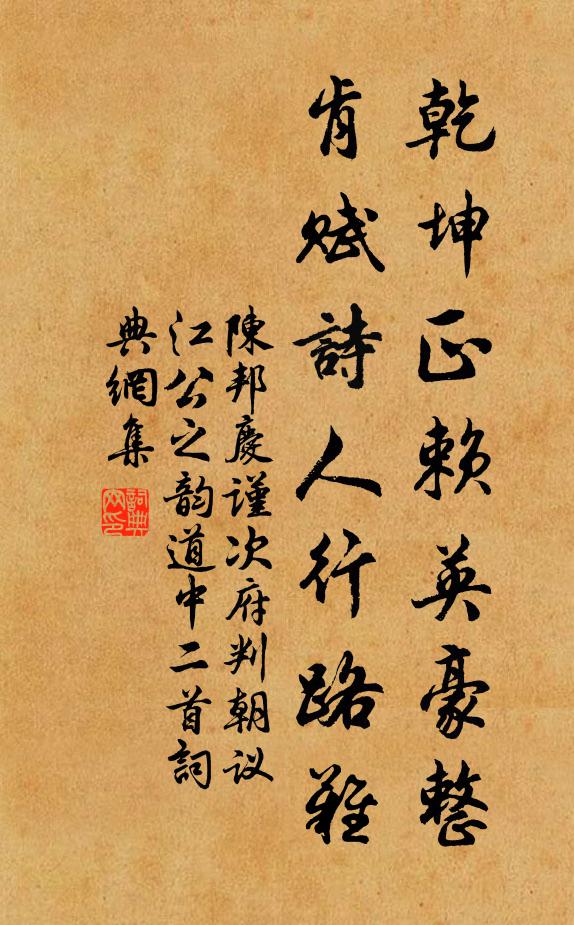 乾坤正赖英豪整
肯赋詩人行路難
陳邦慶谨次府判朝议
江公之韵道中二首詞
典網集
詞典
网印